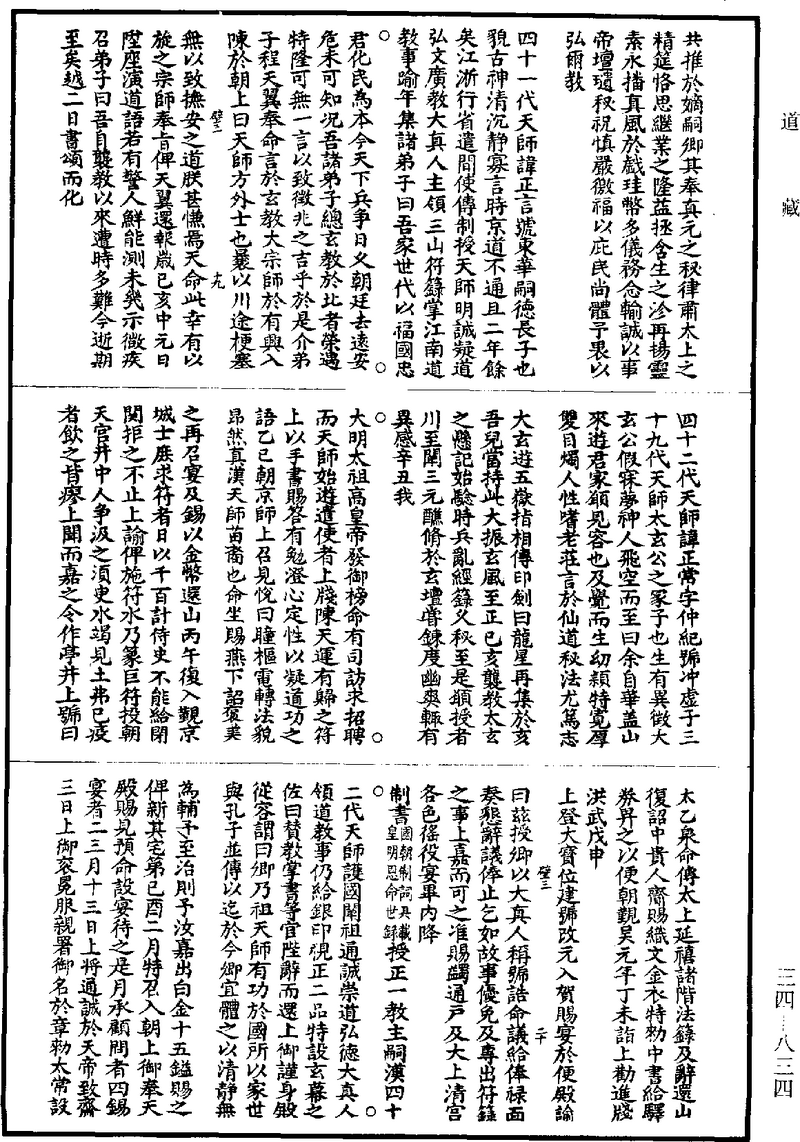 道藏
共推於嫡嗣卿其奉真元之秘律肅太上之
精筵恪思繼業之隆益拯含生之沴再揚靈
素永播真風於戲珪幣多儀務念輸誠以事
帝壇璡秘祝慎嚴徽福以庇民尚體予畏以
弘爾教
四十一代天師諱正言號東華嗣德長子也
貌古神清沉静寡言時京道不通且二年餘
矣江浙行省遣間使傳制授天師明誠凝道
弘文廣教大真人主領三山符籙掌江南道
教事踰年集諸弟子曰吾家世代以福國忠
君化民為本今天下兵争日乂朝廷去遠安
危未可知况吾諸弟子總玄教於北者榮遇
特隆可無一言以致徵兆之吉乎於是介弟
子程天翼奉命言於玄教大宗師於有興入
陳於朝上曰天師方外士也曩以川途梗塞
壁三
十九
無以致撫安之道朕甚慊焉天命此幸有以
旋之宗師奉㫖俾天翼還報歲己亥中元日
陞座演道語若有警人鮮能測未幾示微疾
召弟子曰吾自襲教以來遭時多難今近期
至矣越二日書頌而化
四十二代天師諱正常字仲紀號冲虚子三
十九代天師太玄公之冢子也生有異徵大
玄公假寐夢神人飛空而至曰余自華盖山
來遊君家願見容也及覺而生幼穎特寛厚
雙目燭人性嗜老莊言於仙道秘法尤篤志
大玄遊五嶽指相傳印劍曰龍星再集於亥
吾兒當持此大振玄風至正己亥襲教太玄
之懸記始驗時兵亂經籙乂秘至是願授者
川至闡三元醮脩於玄壇嘗鍊度幽爽輒有
異感辛丑我
大明太祖高皇帝發御榜命有司訪求招聘
而天師始遊遣使者上牋陳天運有歸之符
上以手書賜答有勉澄心定性以凝道功之
語乙巳朝京師上召見悅曰瞳樞電轉法貌
昂然真漢天師苗裔也命坐賜燕下詔褒美
之再召宴及錫以金幣還山丙午復入覲京
城士庶求符者日以千百計侍史不能給閉
関拒之不止上諭俾施符水乃篆巨符投朝
天宫井中人争汲之湏㬰水竭見土弗已疫
者飲之皆瘳上聞而嘉之令作亭井上號曰
太乙泉命傳太上延禧諸階法籙及辭還山
復詔中貴人齎賜織文金衣特勑中書給驛
券昇之以便朝覲吴元年丁未詣上勸進牋
洪武戊申
上登大寳位建號改元入賀賜宴於便殿諭
壁三
二十
曰兹授卿以大真人稱號誥命議給俸禄面
奏懇辭議停止乞如故事優免及專出符籙
之事上嘉而可之准賜蠲通戸及大上清宫
各色徭役宴畢内降
制書國朝制詞具載皇明恩命世録授正一教主嗣漢四十
二代天師護國闡祖通誠崇道弘徳大真人
領道教事仍給銀印視正二品特設玄幕之
佐曰賛教掌書等官陛辭而還上御謹身殿
從容謂曰卿乃祖天師有功於國所以家世
與孔子並傳以迄於今卿宜體之以清静無
為輔予至治則予汝嘉出白金十五鎰賜之
俾新其宅第己酉二月特召入朝上御奉天
殿賜見預命設宴待之是月承顧問者四錫
宴者二三月十三日上将通誠於天帝致齋
三日上御衮冕服親署御名於章勑太常設
三四—八三四